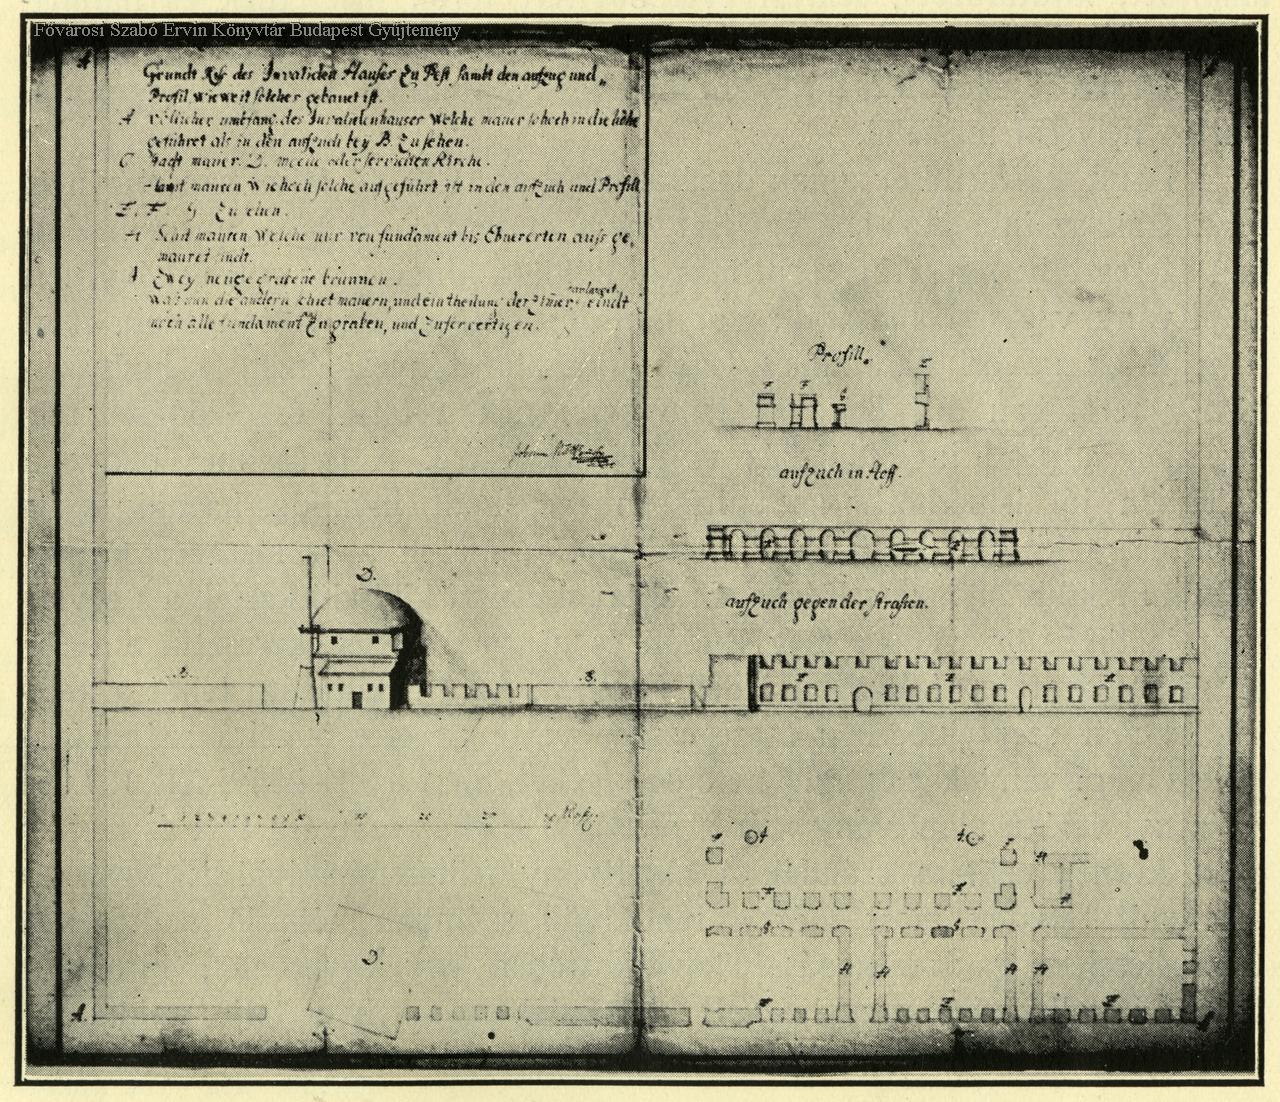 Fővárosi Szabó Ervin Könyvtár Budapest Gyűjtemény
Grundt Riß des Invaliden Hauses zu Pest sambt den aufzug und
Profil wie weit solcher gebauet ist.
A völlicher umbfang des Invalidenhauser Welche mauer so hoch in die höhe
geführet als in den aufzuch bey B. zu sehen.
C Stadt mauer. D. oder serviten Kirche.
haubt mauren wie hoch solche aufgeführt ist in den aufzuch und Profill
E. F. G Zu sehen.
H Schit mauren Welche nur von fundament bis Ebnererten aufs ge,
mauret sindt.
I Zwey neugegrabene brunnen.
Was nun die andern schiet mauern, und eintheilung der Zimer anlanget sindt
noch alle fundament Zu graben, und Zufervertigen.
Johann
Profill.
aufzuch in Hoff.
D.
aufzuch gegen der straßen.
B.
D.
A.